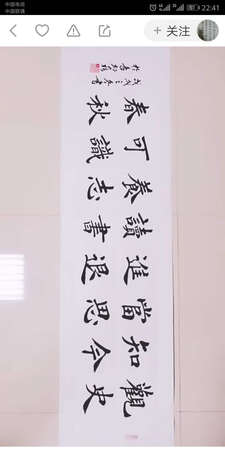 中国电信
中国联通
22:41
+ 关注
觀史
知今
當思
進退
讀書
養志
可識
春秋
戊戌之冬書